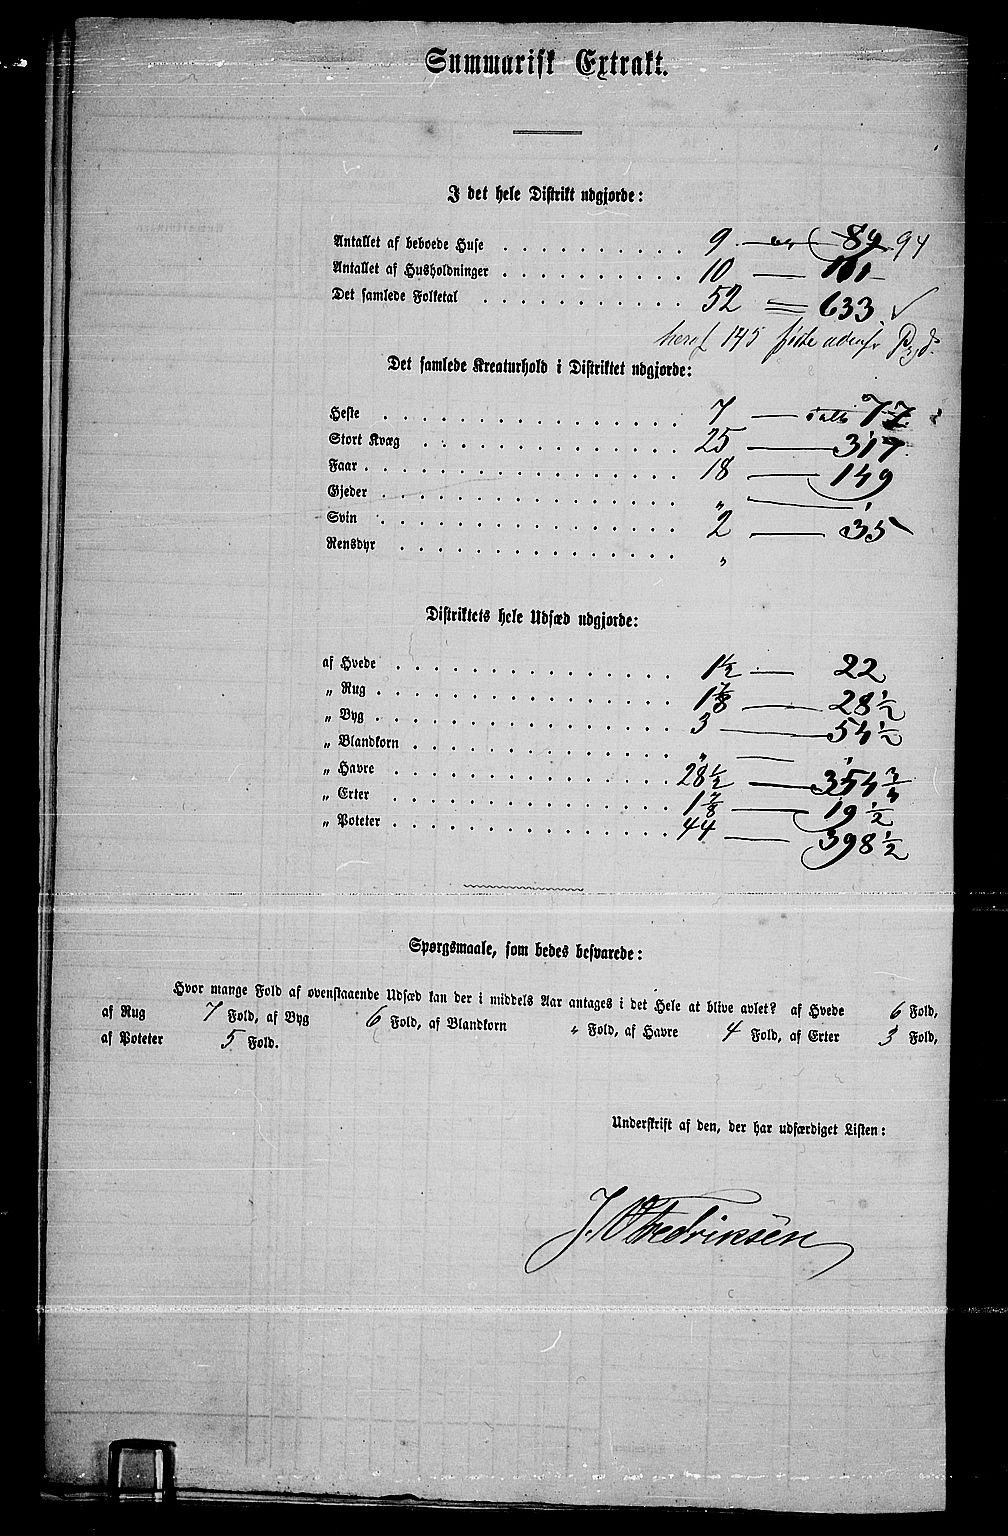 Summarisk Extrakt.
I det hele Distrikt udgjorde:
Antallet af beboede Huse . . . . . . . . 9 — 89 94
Antallet af Husholdninger . . . . . . . . 10 — 101
Det samlede Folketal . . . . . . . . 52 = 633 ✓
heraf 145 fødte udenfr
Det samlede Kreaturhold i Distriktet udgjorde:
Heste . . . . . . . . 7 — ialt 77
Stort Kvæg . . . . . . . . 25 — 317
Faar . . . . . . . . 18 — 149
Gjeder . . . . . . . . „ —
Svin . . . . . . . . 2 — 35
Rensdyr . . . . . . . . „
Distriktets hele Udsæd udgjorde:
af Hvede . . . . . . . . 1½ — 22
„ Rug . . . . . . . . 1⅞ — 28½
„ Byg . . . . . . . . 3 — 54½
„ Blandkorn . . . . . . . . „ —
„ Havre . . . . . . . . 28½ — 354¾
„ Erter . . . . . . . . 1⅞ — 19½
„ Poteter . . . . . . . . 44 — 398½
Spørgsmaale, som bedes besvarede:
Hvor mange Fold af ovenstaaende Udsæd kan der i middels Aar antages i det Hele at blive avlet? af Hvede 6 Fold,
af Rug 7 Fold, af Byg 6 Fold, af Blandkorn „ Fold, af Havre 4 Fold, af Erter 3 Fold,
af Poteter 5 Fold.
Underskrift af den, der har udfærdiget Listen:
Fredriksen